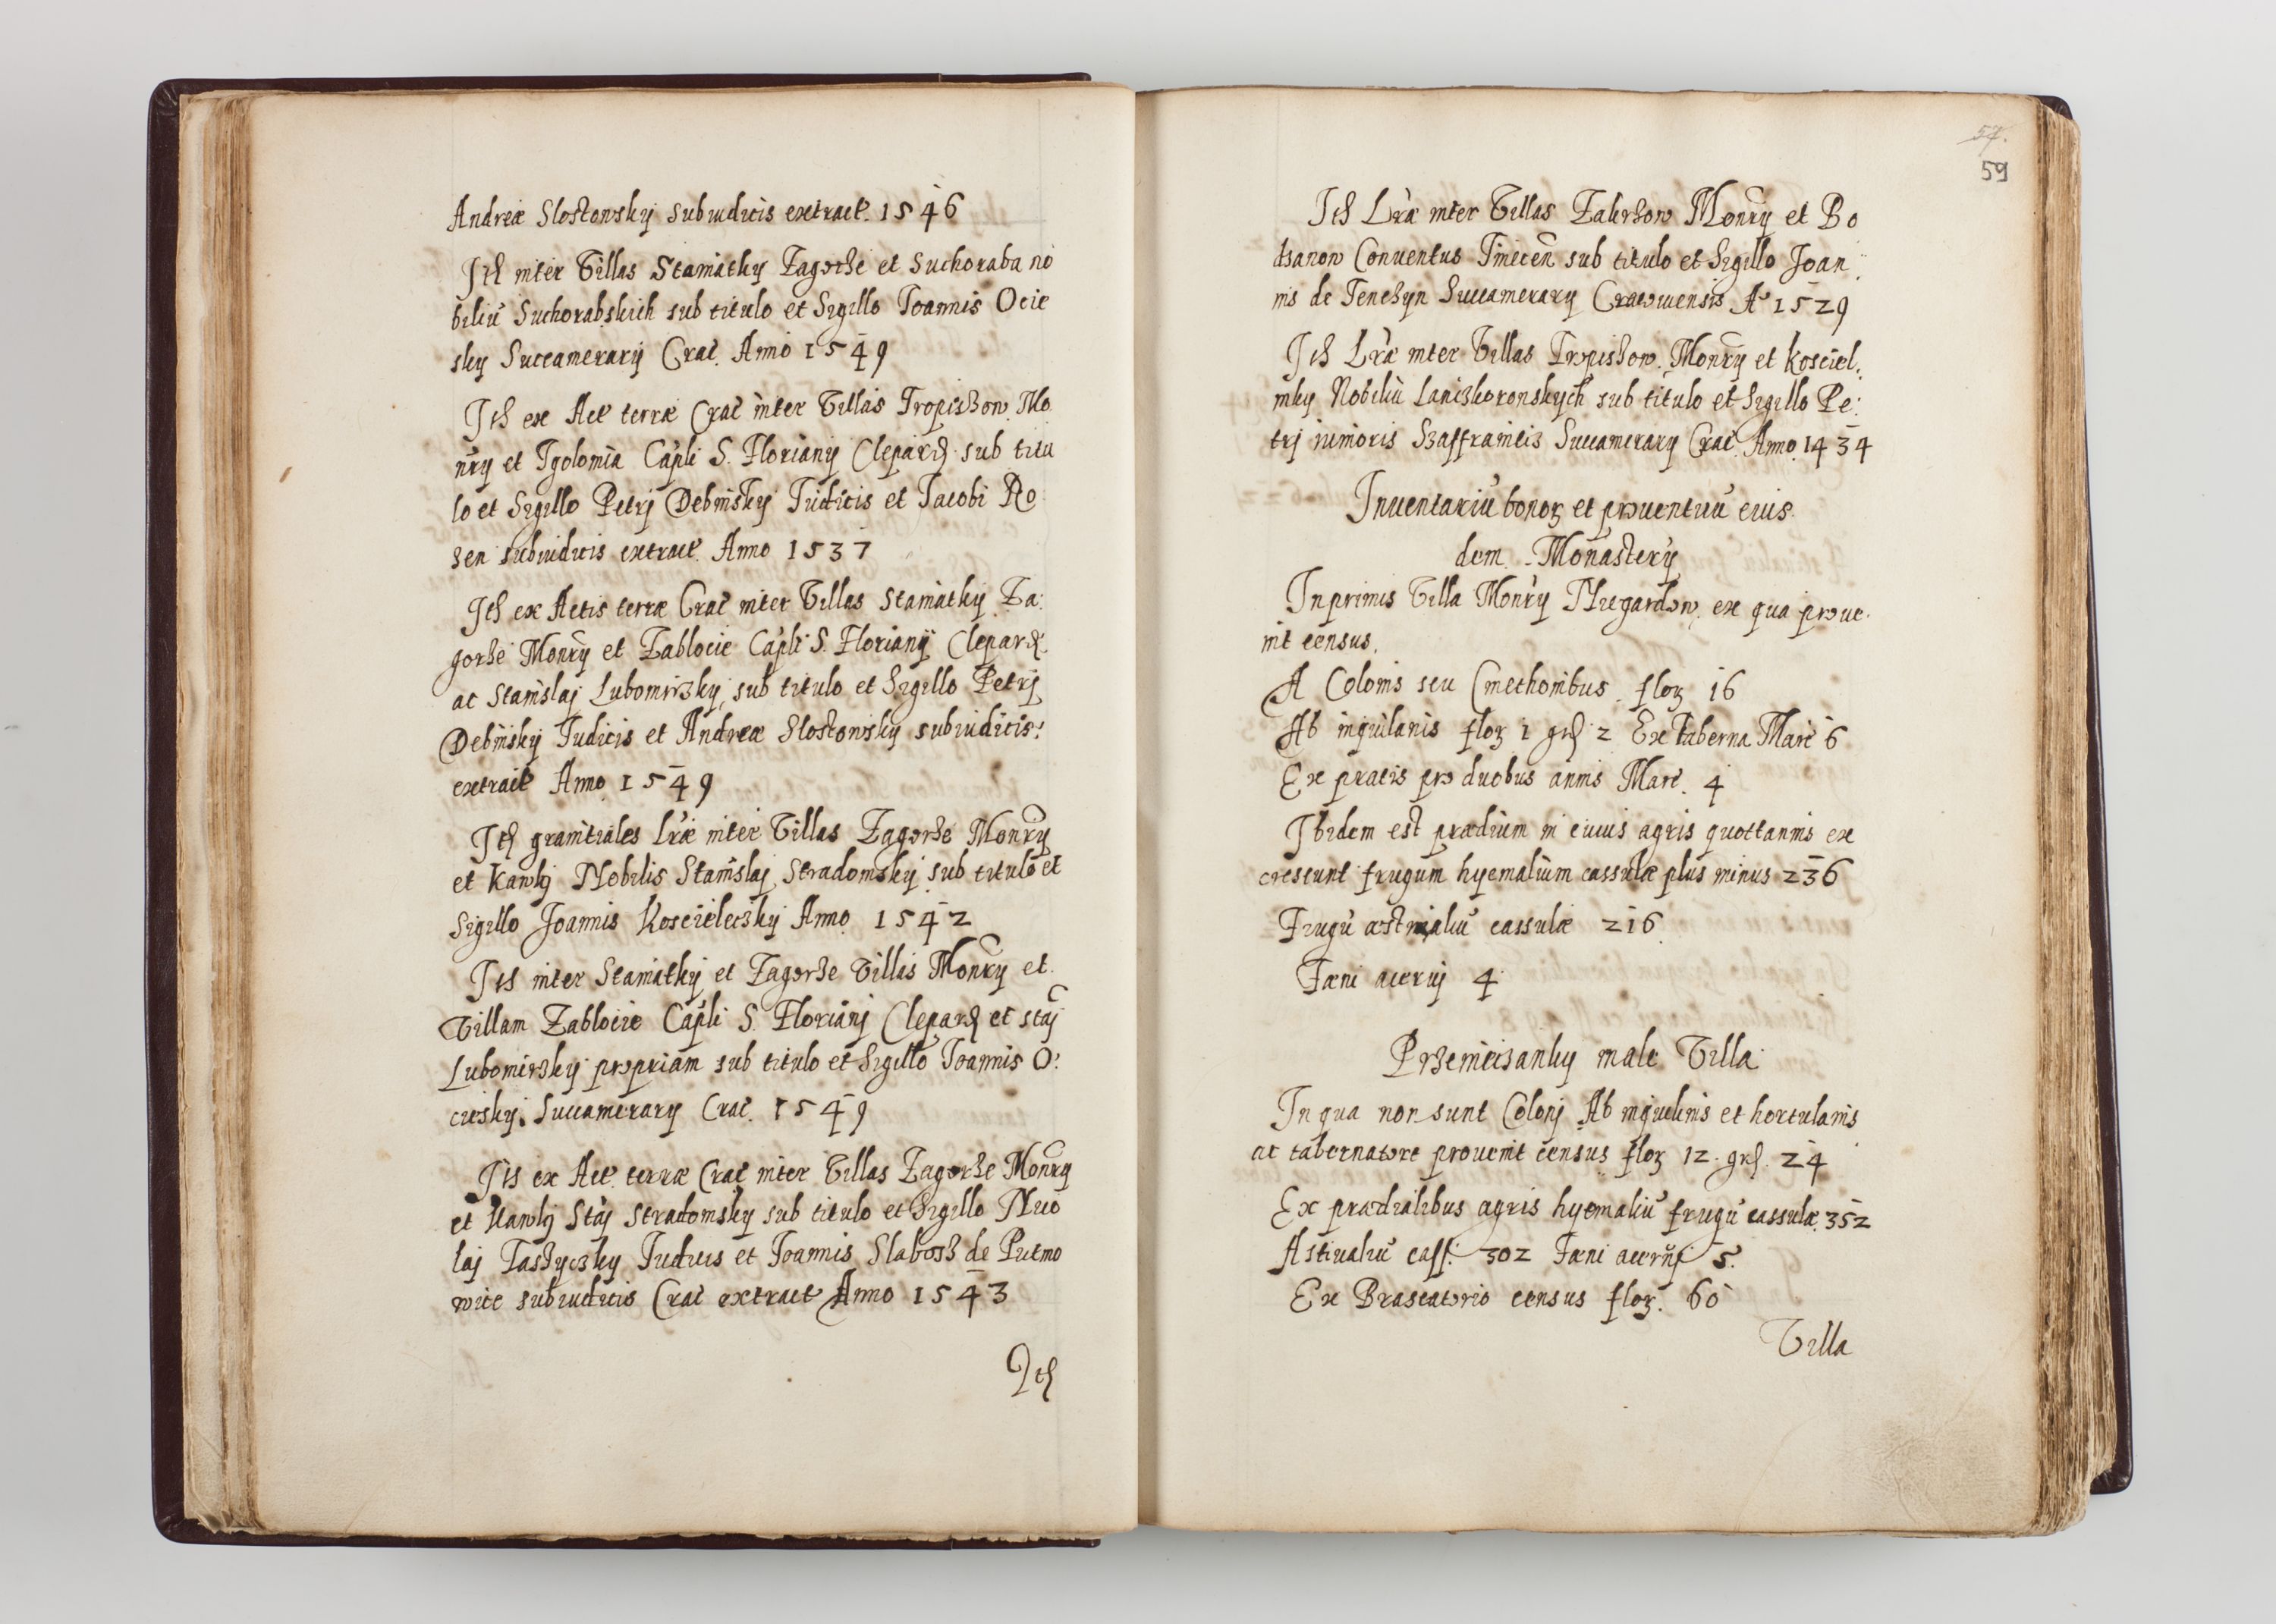 Andreæ Slostowskÿ subiudicis extract. 1546
Itẽ inter Villas Stamiatky Zagorze et Suchoraba no
biliũ Suchorabskich sub titulo et Sigillo Joannis Ocie
sky Succamerarÿ Crac. Anno 1549
Itẽ ex Act terræ Crac inter Villas Tropiszow Mo
nrÿ et Igolomia Capli S. Florianÿ Clepard. sub titu
lo et Sigillo Petrj Debinskÿ Judicis et Jacobi Ro
sen subiudicis extract Anno 1537
Itẽ ex Actis terræ Crac inter Villas Stamiatky Za:
gorze Monrÿ et Zablocie Capli S. Florianÿ Clepard.
ac Stanislaj Lubomirsky, sub titulo et Sigillo Petrj
Debinskÿ Judicis et Andreæ Slostowskÿ subiudicis:
extract Anno 1549
Itẽ granitiales Lræ inter Villas Zagorze Monrÿ
et Kawkj Nobilis Stanislaj Stradomskÿ sub titulo et
Sigillo Joannis Koscieleczkÿ Anno 1542
Itẽ inter Stamiatkj et Zagorze Villas Monrÿ et
Villam Zablocie Capli S. Florianj Clepard et Staj
Lubomirskÿ propriam sub titulo et Sigillo Joannis O:
cieskÿ. Succamerarÿ Crac. 1549
Itẽ ex Act. terræ Crac inter Villas Zagorze Monrÿ
et Kawkj Staj Stradomskÿ sub titulo et Sigillo Nico
laj Taszyczkÿ Judicis et Joannis Slabosz de Putnio
wice subiudicis Crac extract Anno 1543
Itẽ
57.
59
Itẽ Lræ inter Villas Zakrzow Monrÿ et Bo
dzanow Conuentus Tinecen sub titulo et Sigillo Joan:
nis de Tenczyn Succamerarÿ Cracouiensis Aº 1529
Itẽ Lræ inter Villas Tropiszow Monrÿ et Kosciel:
niky Nobiliũ Lanczkoronskych sub titulo et Sigillo Pe:
trj iunioris Szaffraniecz Succamerarÿ Crac. Anno 1434
Inuentariũ bonoꝝ et prouentuũ eius
dem Monasterÿ
Inprimis Villa Monrÿ Niegardow, ex qua proue
nit census.
A Colonis seu Cmethonibus floꝝ 16
Ab inquilinis floꝝ 1 grꝭ 2 Ex taberna Marc 6
Ex pratis pro duobus annis Marc. 4
Ibidem est prædium in cuius agris quottannis ex
crescunt frugum hyemalium cassulæ plus minus 236
Frugũ æstiualiũ cassulæ 216
Fæni acerui 4
Przemieczanky male Villa
In qua non sunt Colonj Ab inquilinis et hortulanis
ac tabernatore prouenit census floꝝ 12 grꝭ. 24
Ex prædialibus agris hyemaliũ frugũ cassulæ 352
Æstiualiũ cass. 302 Fæni acerui 5.
Ex Braseatorio census floꝝ. 60
Villa